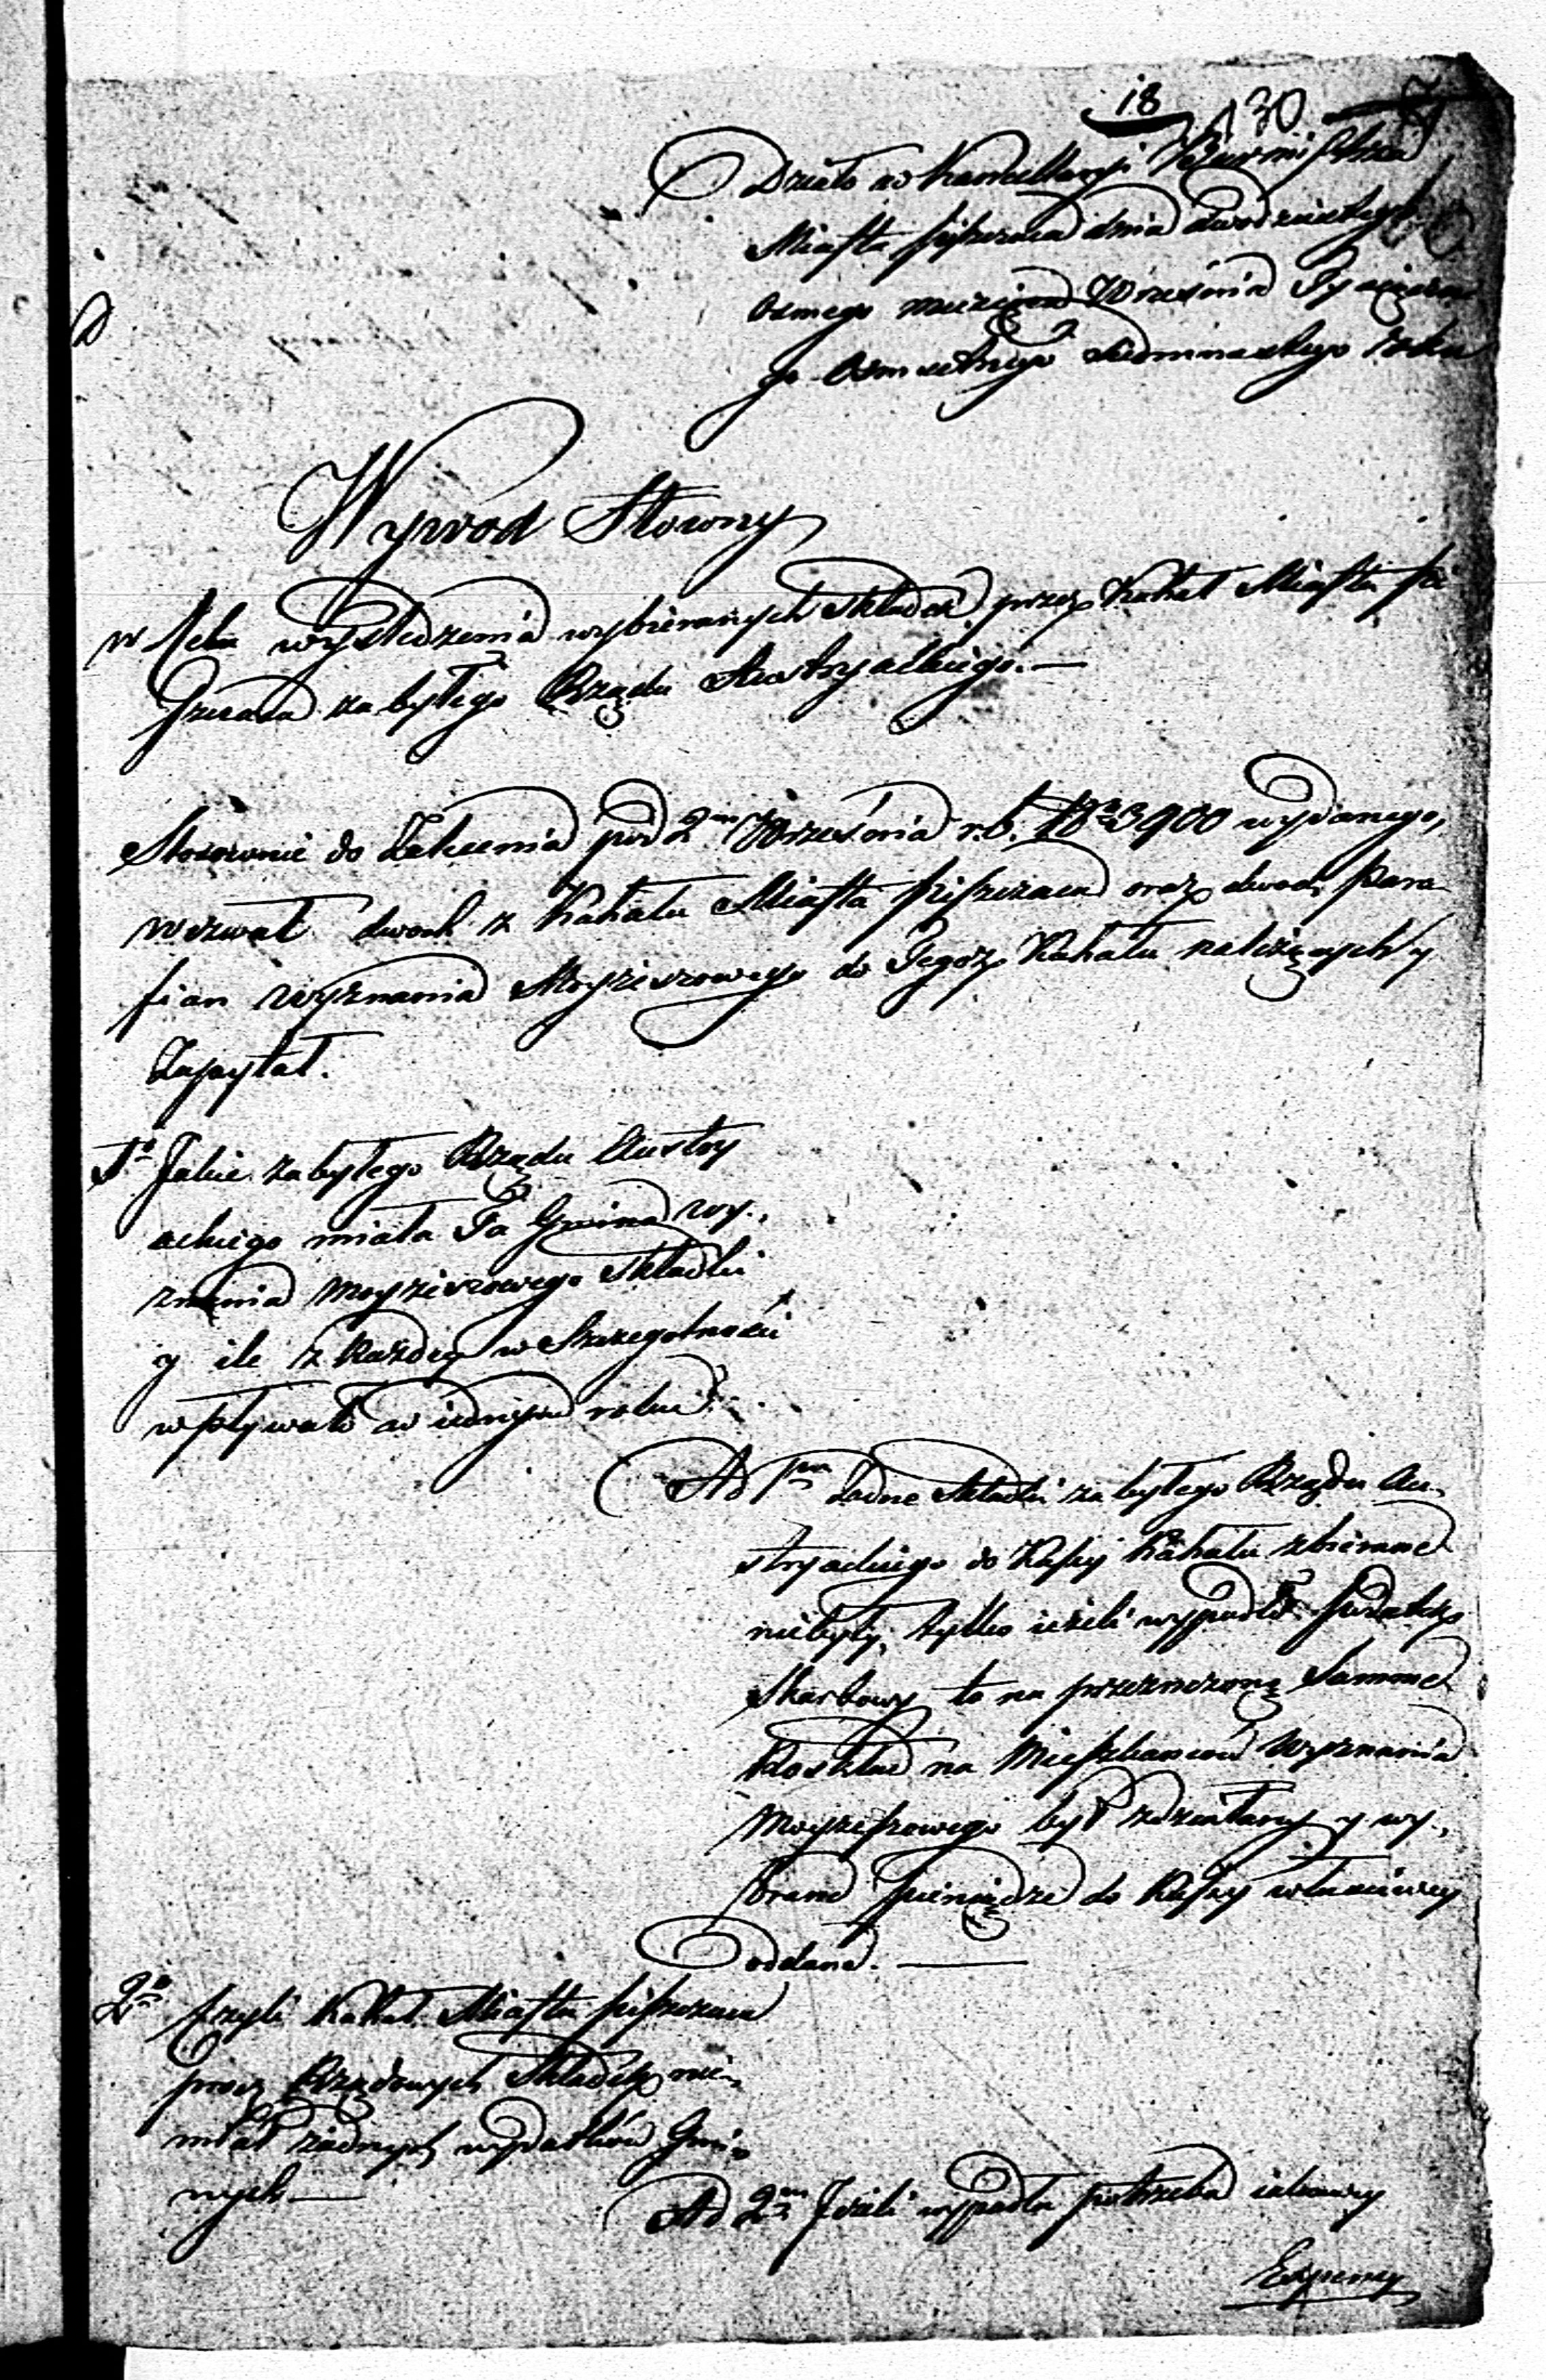 18
130
Działo w Kancellaryi Burmistrza
Miasta Piszczaca dnia dwudziestego
osmego miesiąca Września Tysiączne
go Osmsetnego Siedmnastego Roku
Wywod Słowny
w celu wyśledzenia wybieranych składek przez Kahał Miasta Pi
szczaca za byłego Rządu Austryackiego. —
Stosownie do Zalecenia pod 2m Września r. b. No 3900 wydanego,
wezwał dwoch z Kahału Miasta Piszczaca oraz dwoch Para
fian wyznania Moyżeszowego do Tegoż Kahału należących y
Zapytał.
1o Jakie za byłego Rządu Austry
ackiego miała Ta Gmina wy,
znania Moyżeszowego składki
y ile z każdey w Szczegolności
wpływało w iednym roku
Ad 1m Żadne składki za byłego Rządu Au,
stryackiego do Kassy Kahału zbierane
niebyły, tylko ieżeli wypadł podatek
Skarbowy to na przeznaczoną Summe
Rozkład na Mieszkancow Wyznania
Moyżeszowego był zdziałany y wy,
brane pieniądze do Kassy właściwey
oddane. —
2o Czyli Kahał Miasta Piszczaca
procz Rządowych Składek nie,
miał żadnych wydatków Gmi,
nych —
Ad 2m Jeżeli wypadła potrzeba iakowey
Expensy